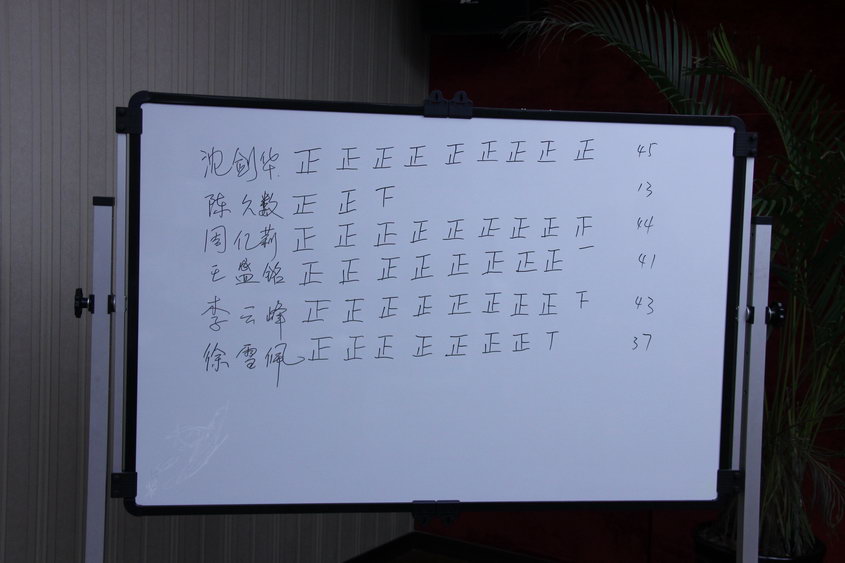 沈剑华 正 正 正 正 正 正 正 正 正 45
陈久数 正 正 下 13
周亿莉 正 正 正 正 正 正 正 正 正 44
王盛铭 正 正 正 正 正 正 正 正 一 41
李云峰 正 正 正 正 正 正 正 正 下 43
徐雪佩 正 正 正 正 正 正 正 丅 37